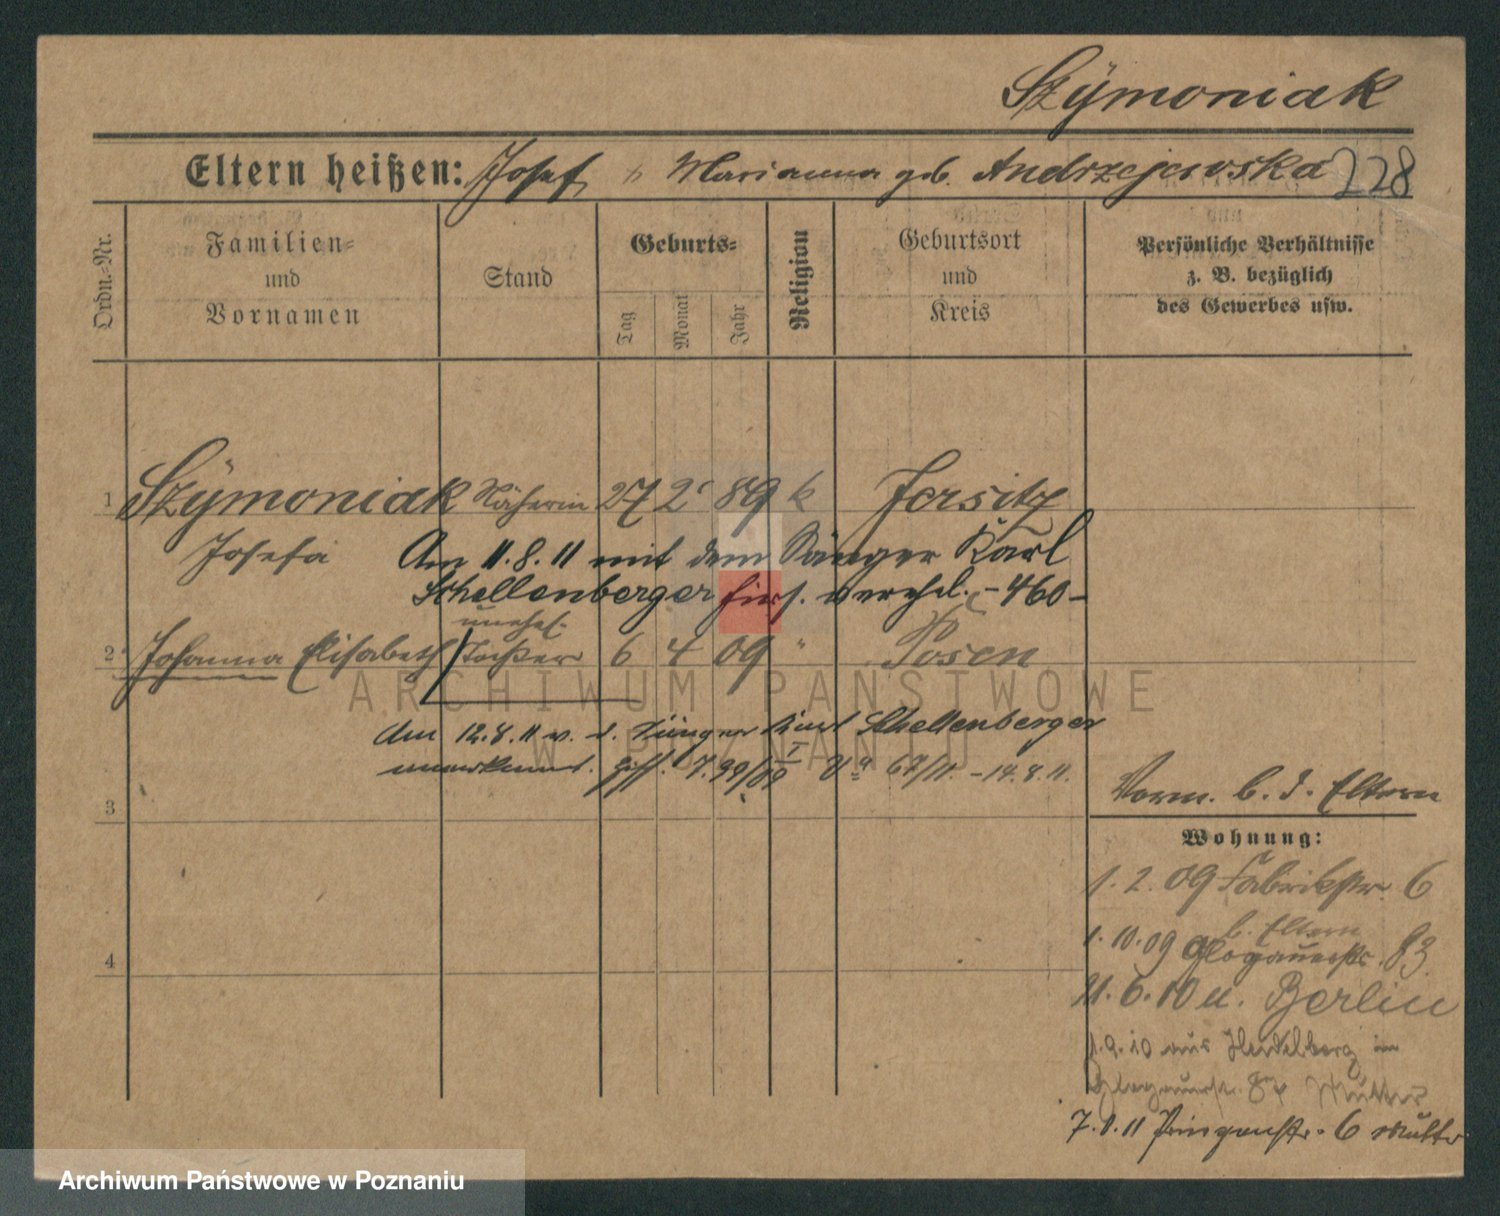 Szÿmoniak
Eltern heißen: Josef u. Marianna geb. Andrzejewska 228
Ordn.-Nr.
Familien-
und
Vornamen
Stand
Geburts-
Tag
Monat
Jahr
Religion
Geburtsort
und
Kreis
Persönliche Verhältnisse
z. B. bezüglich
des Gewerbes usw.
1 Szÿmoniak Näherin 27 2 89 k Jersitz
Josefa
Am 11.8.11 mit dem Sänger Karl
Schellenberger hirs. verehel. - 460 -
unehel.
2 Johanna Elisabeth Tochter 6 4 09 " Posen
Am 12.8.11 v. d. Sänger Karl Schellenberger
anerkannt. 99/09 67/11. - 14.8.11.
3
Vorm. b. d. Eltern
Wohnung:
1. 2. 09 Fabrikstr. 6
b. Eltern
1. 10. 09 Glogauerstr. 83
21. 6. 10 n. Berlin
4
1. 9. 10 aus Heidelberg in
Glogauerstr. 87 Mutter
7. 1. 11 Prinzenstr. 6 Mutter
ARCHIWUM PAŃSTWOWE
W POZNANIU
Archiwum Państwowe w Poznaniu